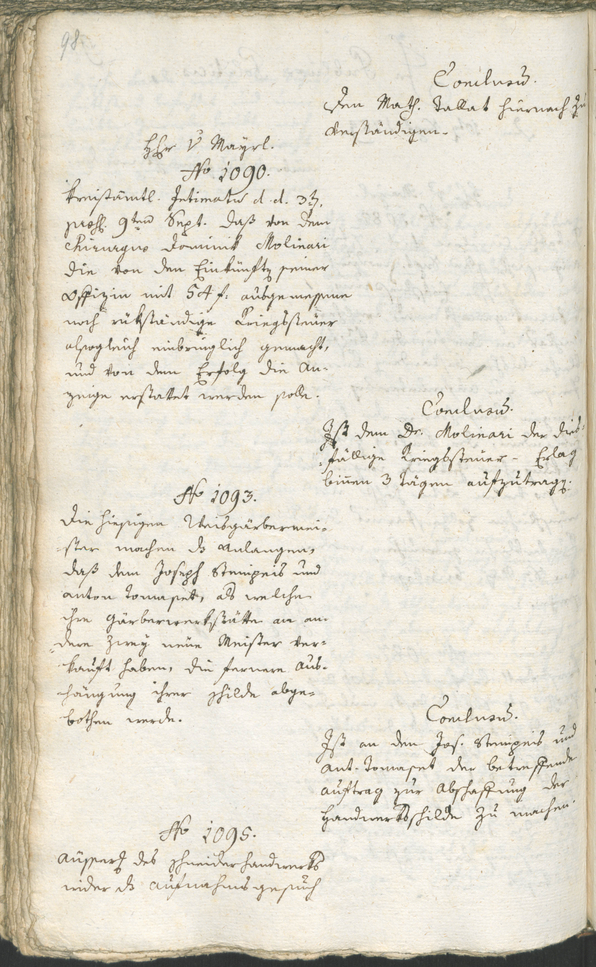 98
Conclusum.
Dem Math. Tallat hiernach zu
verständigen.
Hhr v Mayrl.
No 1090.
Kreisämtl. Intimatum d. d. 31.
prs. 9ten Sept. daß von dem
Chirurgus Dominik Molinari
die von den Einkünften seiner
Offizin mit 54 f. ausgemessene
noch rükständige Kriegssteuer
alsogleich einbringlich gemacht,
und von dem Erfolg die An-
zeige erstattet werden solle.
Conclusum.
Ist dem Dr. Molinari der dies-
fällige Kriegssteuer-Erlag
binnen 3 Tägen aufzutragen.
No 1093.
Die hiesigen Weisgärbermei-
ster machen das Anlangen,
daß dem Joseph Stempeis und
Anton Tomaset, als welche
ihre Gärberwerkstätte an an-
dere zwey neue Meister ver-
kauft haben, die fernere Aus-
hängung ihrer Schilde abge-
bothen werde.
Conclusum.
Ist an den Jos. Stempeis und
Ant. Tomaset der betreffende
Auftrag zur Abschaffung der
Handwerksschilde zu machen.
No 1095.
Äusserung des Schneiderhandwerks
wider das Aufnahmsgesuch